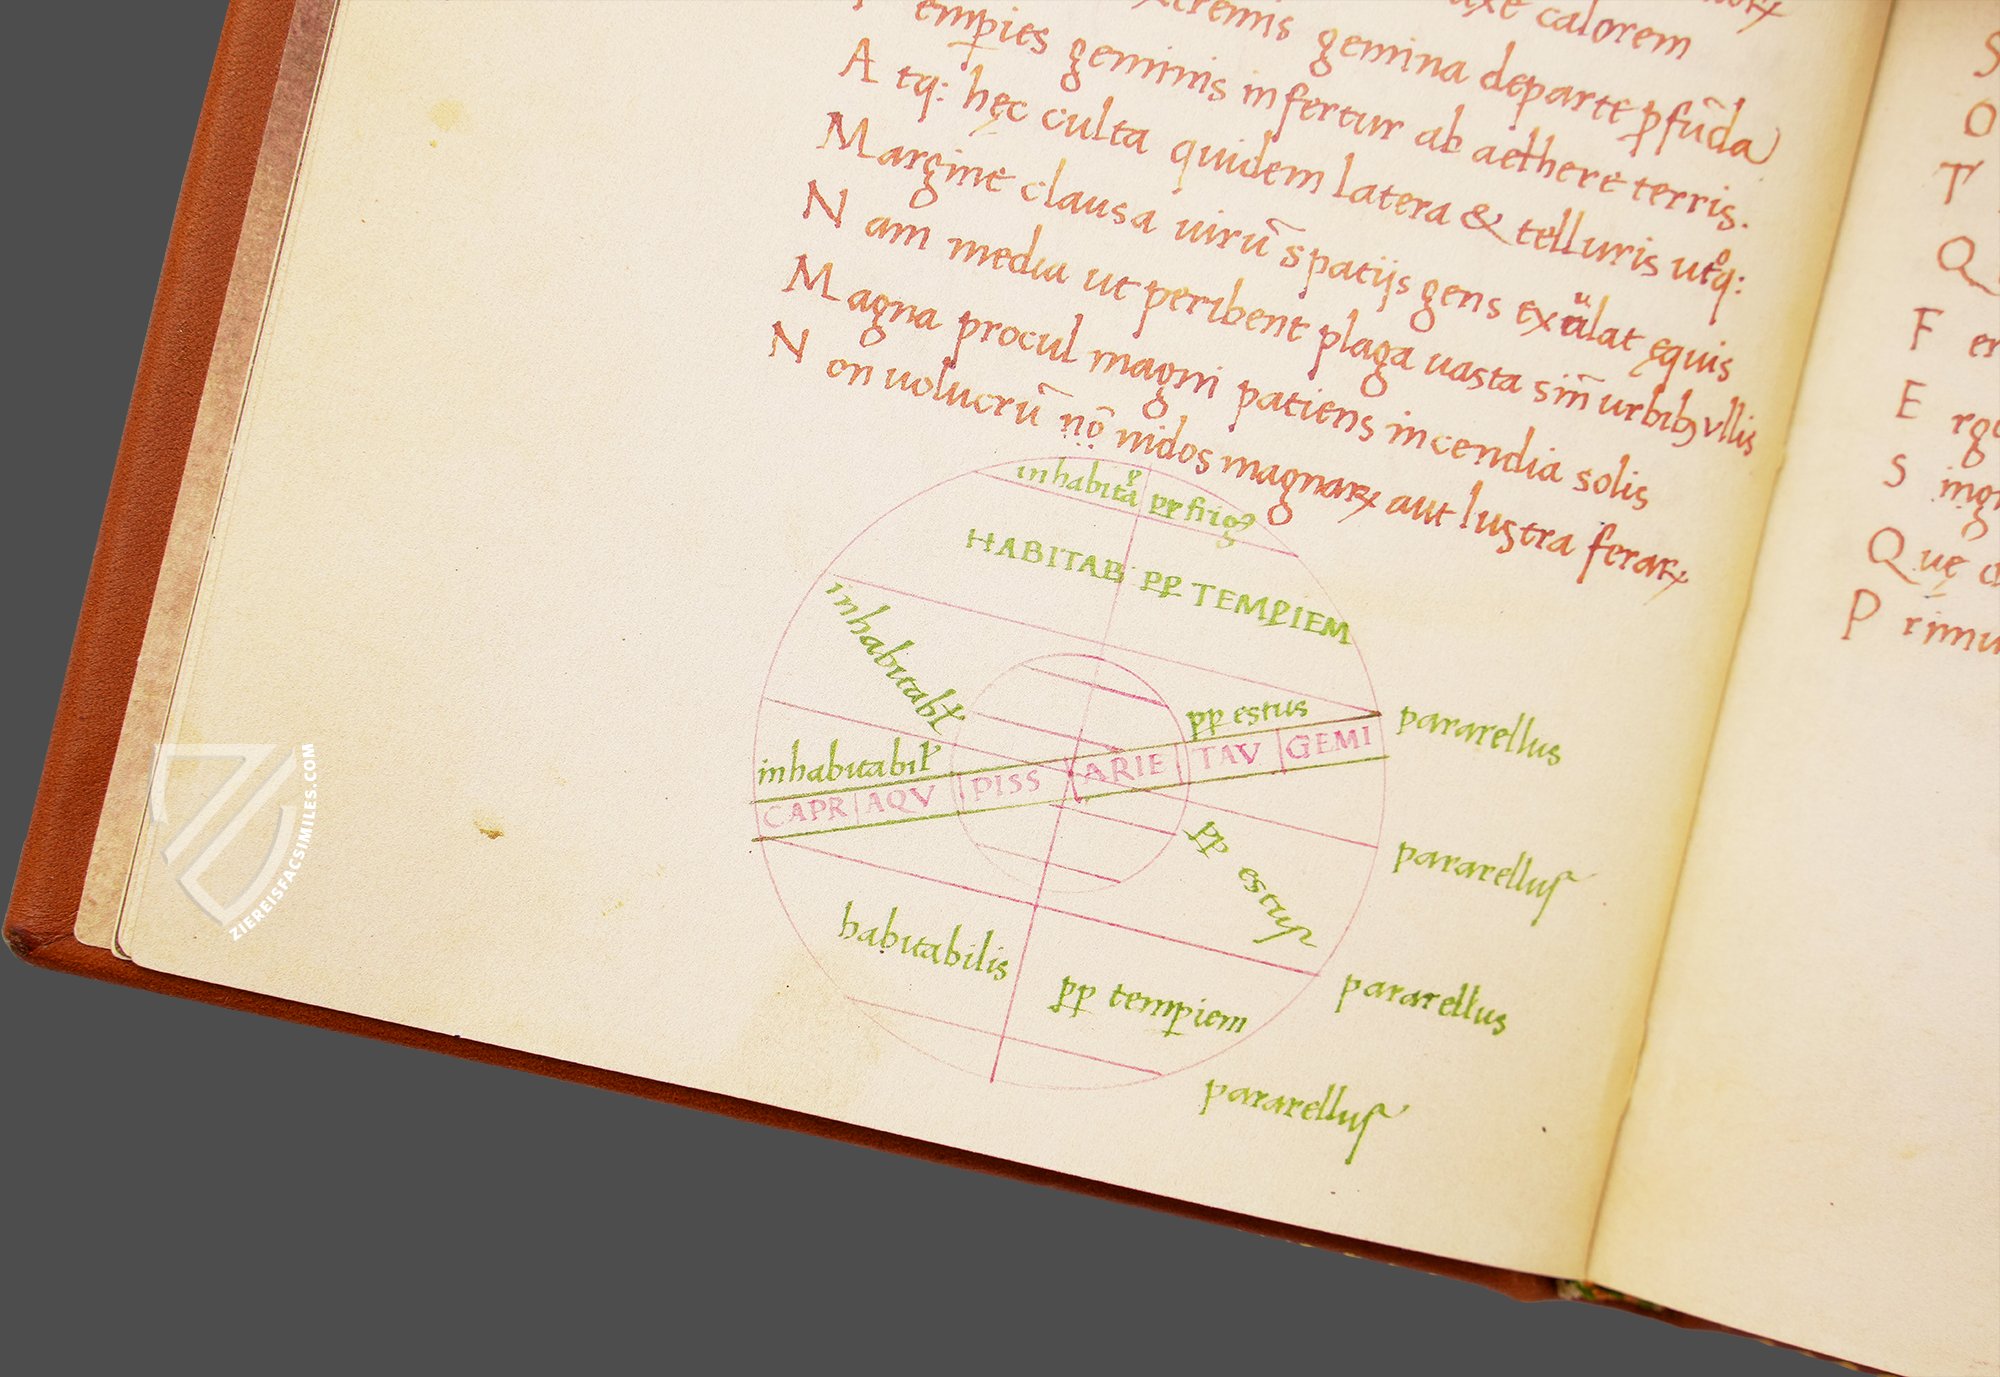 calorem
tremis gemina departe pfūda
empies geminis infertur ab aethere terris.
A tq: hęc culta quidem latera & telluris utq:
Margine clausa uirū spatijs gens exulat ęquis
N am media ut peribent plaga uasta sin̄ urbibꝫ vllis
Magna procul magni patiens incendia solis
N on uolucrū nō nidos magnaꝝ aut lustra feraꝝ
inhabita pp frig9
HABITAB pp TEMPIEM
inhabitabl
pp estus
pararellus
inhabitabil
CAPR AQV PISS ARIE TAV GEMI
pp estus
pararellus
habitabilis
pp tempiem
pararellus
pararellus
S
O
T
Q
F er
E rgo
S ing
Q uę c
P rimu
ZIEREISFACSIMILES.COM